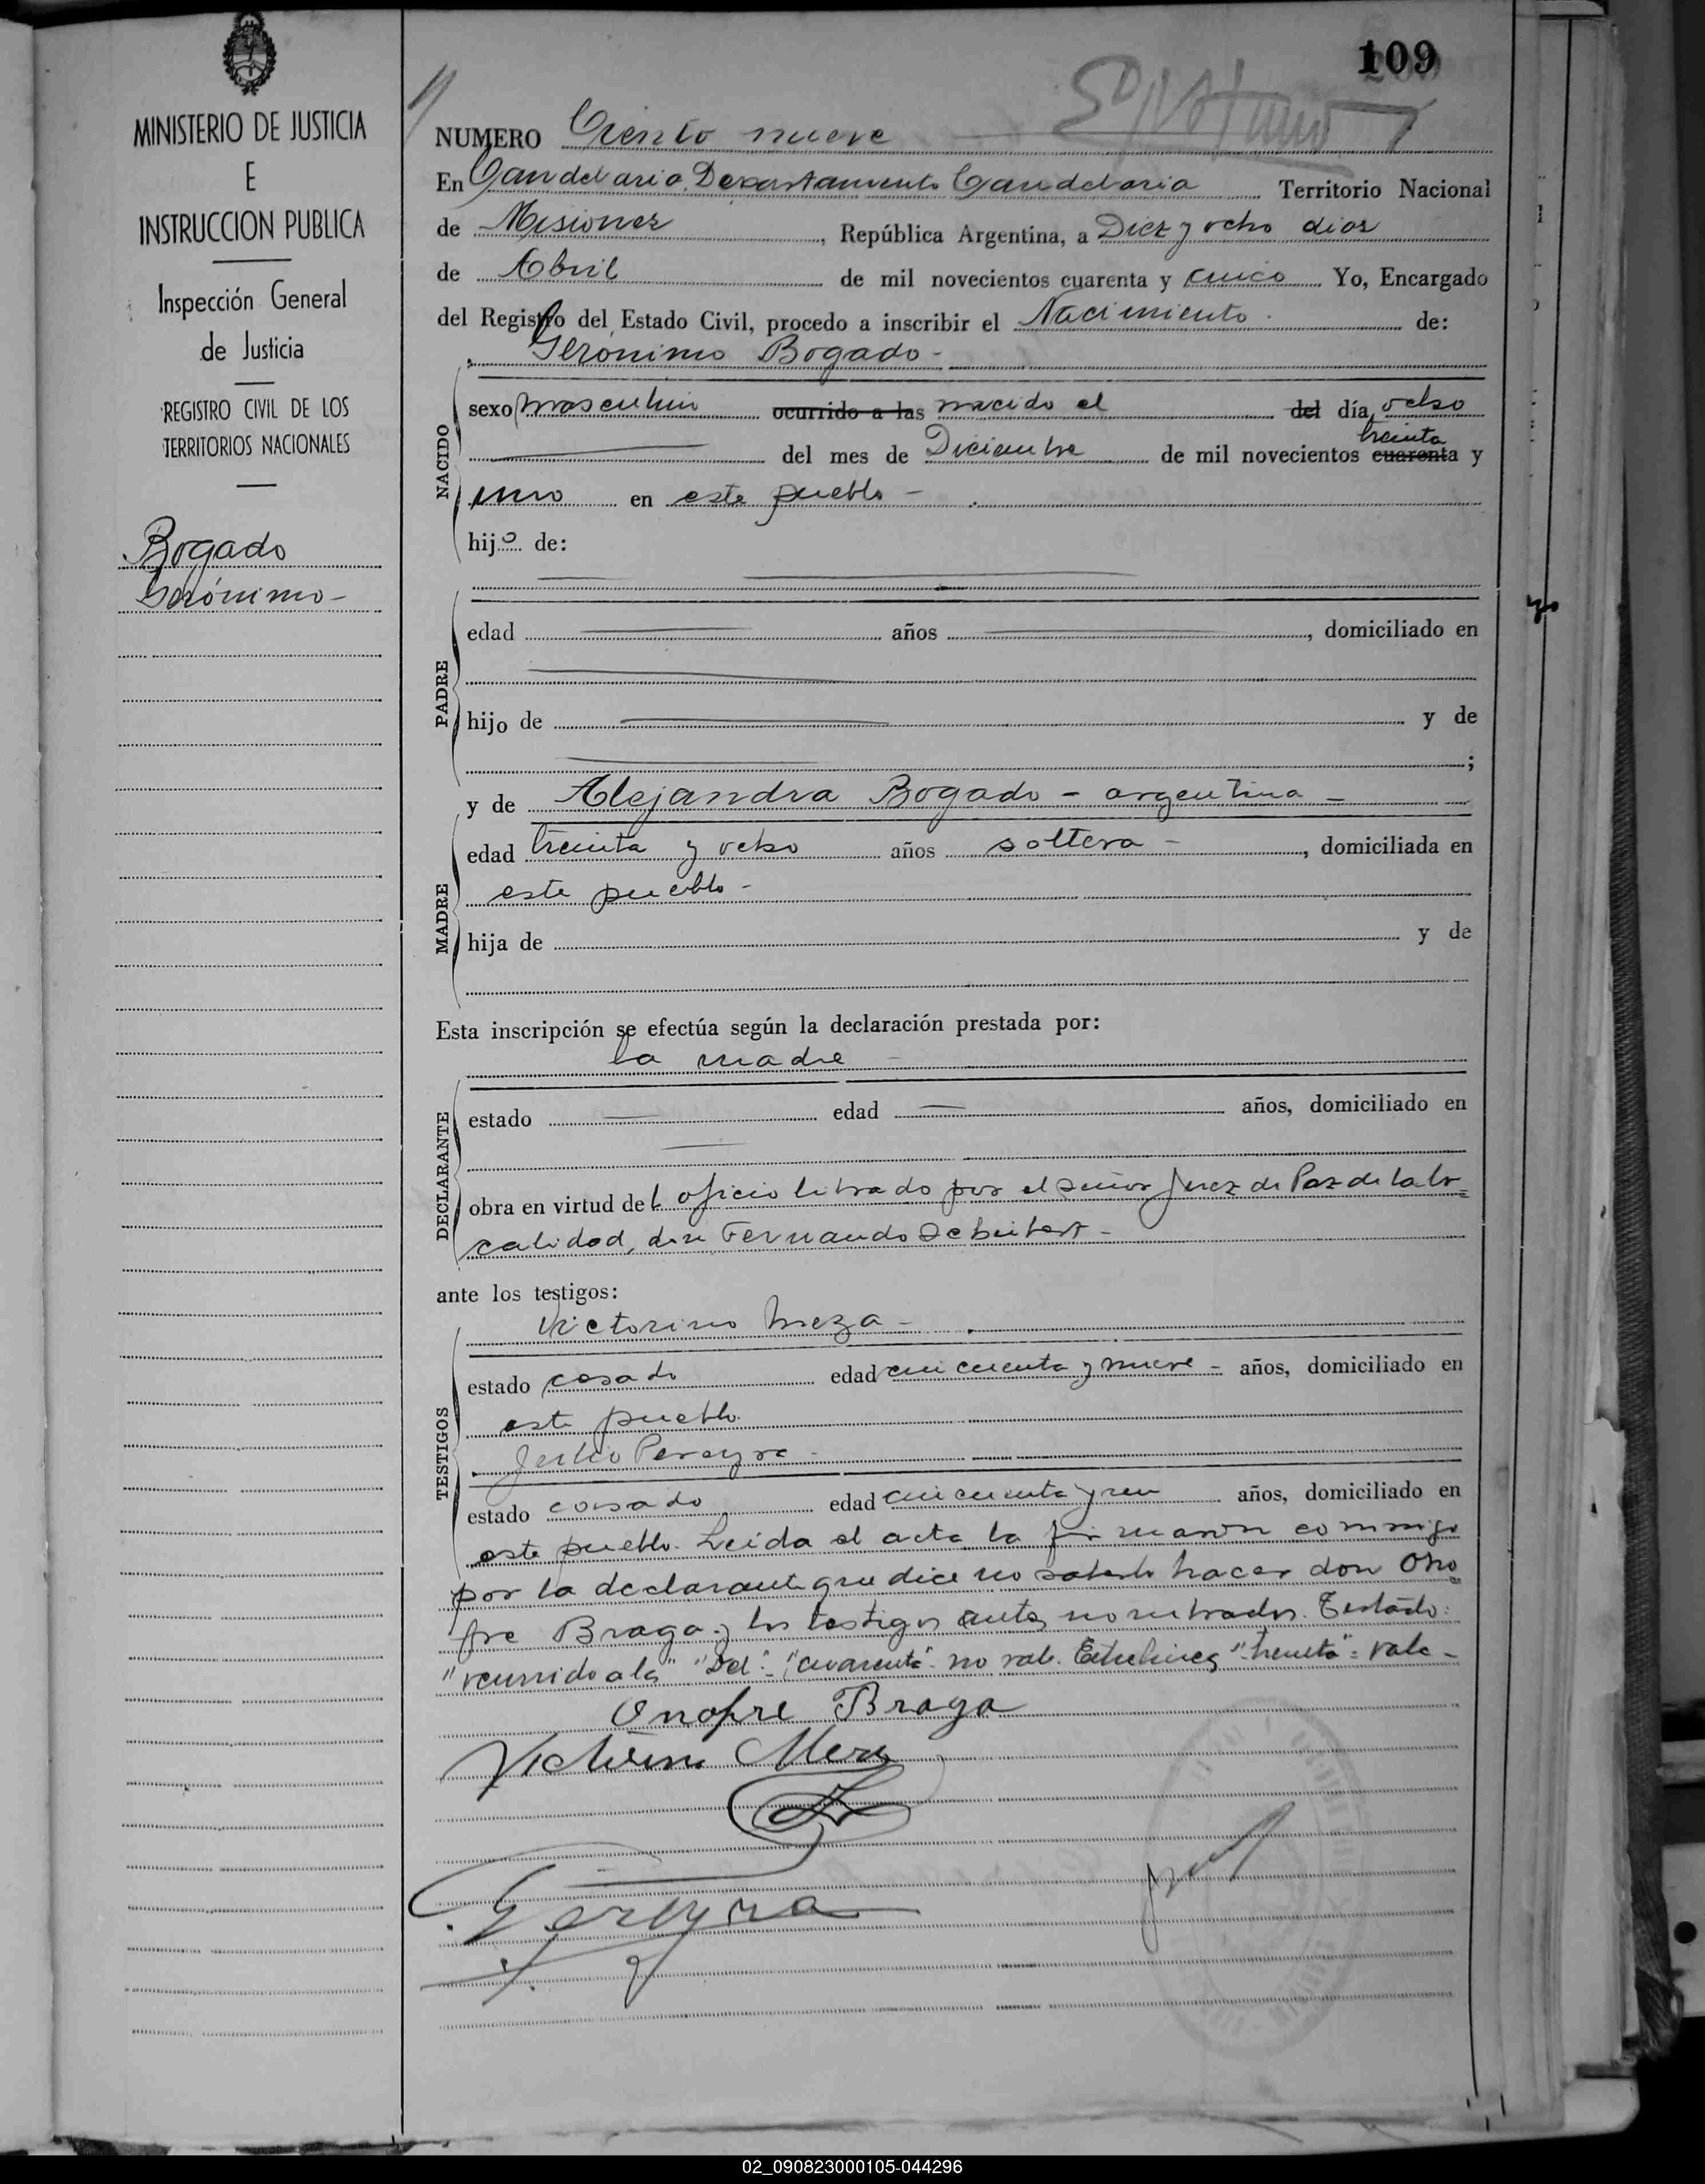 109
MINISTERIO DE JUSTICIA
E
INSTRUCCION PUBLICA
Inspección General
de Justicia
REGISTRO CIVIL DE LOS
TERRITORIOS NACIONALES
Bogado
Gerónimo -
NUMERO Ciento nueve
En Candelaria, Departamento Candelaria Territorio Nacional
de Misiones, República Argentina, a Diez y ocho dias
de Abril de mil novecientos cuarenta y cinco Yo, Encargado
del Registro del Estado Civil, procedo a inscribir el Nacimiento de:
Gerónimo Bogado -
NACIDO
sexo masculino ocurrido a las nacido el del día ocho
treinta
del mes de Diciembre de mil novecientos cuarenta y
uno en este pueblo -
hijo de:
PADRE
edad años, domiciliado en
hijo de y de
;
MADRE
y de Alejandra Bogado - argentina -
edad treinta y ocho años soltera -, domiciliada en
este pueblo -
hija de y de
Esta inscripción se efectúa según la declaración prestada por:
la madre -
DECLARANTE
estado edad años, domiciliado en
obra en virtud del oficio librado por el señor Juez de Paz de la lo=
calidad, don Fernando -
ante los testigos:
TESTIGOS
Victorino Meza -
estado casado edad cincuenta y nueve - años, domiciliado en
este pueblo.
Julio Pereyra -
estado casado edad cincuenta y un años, domiciliado en
este pueblo. Leida el acta la firmaron conmigo
por la declarante que dice no saberlo hacer don Ono=
fre Braga y los testigos antes nombrados. Testado:
"ocurrido a las" "Del" "cuarenta" no vale. Entrelineas "treinta" = vale -
Onofre Braga
Victorino Meza
Pereyra
02_090823000105-044296